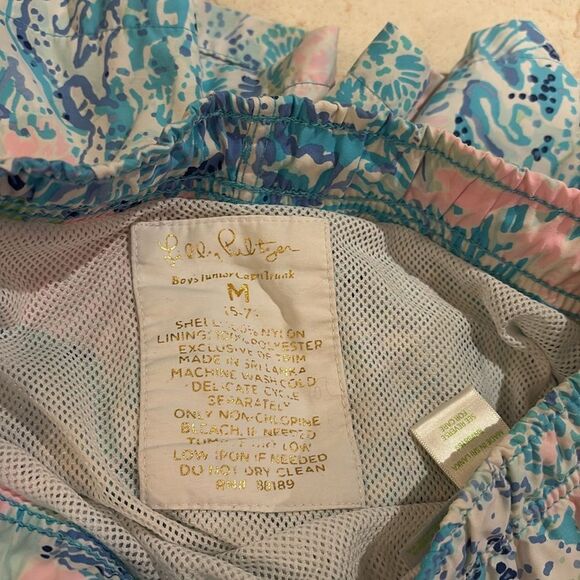 Lilly Pulitzer
Boys Junior Capn Trunk
M
(5-7)
NYLON
LINING: 100% POLYESTER
EXCLUSIVE OF TRIM
MADE IN SRI LANKA
MACHINE WASH COLD
DELICATE CYCLE
SEPARATELY
ONLY NON-CHLORINE
BLEACH, IF NEEDED
LOW
LOW IRON IF NEEDED
DO NOT DRY CLEAN
MADE IN SRI LANKA
SEE REVERSE
FOR CARE